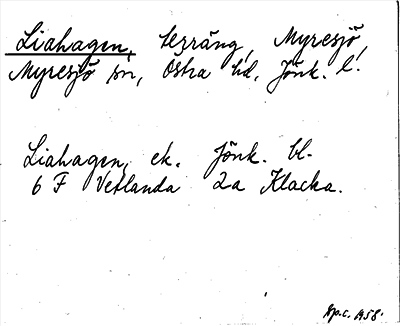 Liahagen, terräng, Myresjö,
Myresjö sn, Östra hd, Jönk. l.
Liahagen, ek. Jönk. bl.
6 F Vetlanda 2a Klacka.
Op.c. 1958.